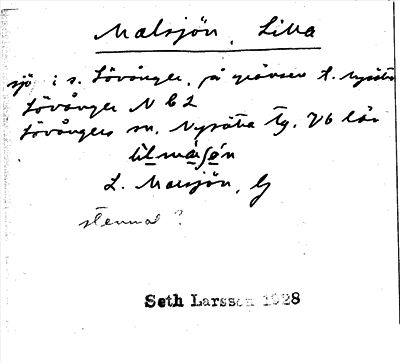 Malsjön, Lilla
sjö i s. Lövånger, på gränsen t. Nysätra
Lövånger N C L
Lövångers sn. Nysätra tg. Vb län
L. Malsjön, G
stenmal ?
Seth Larsson 1928